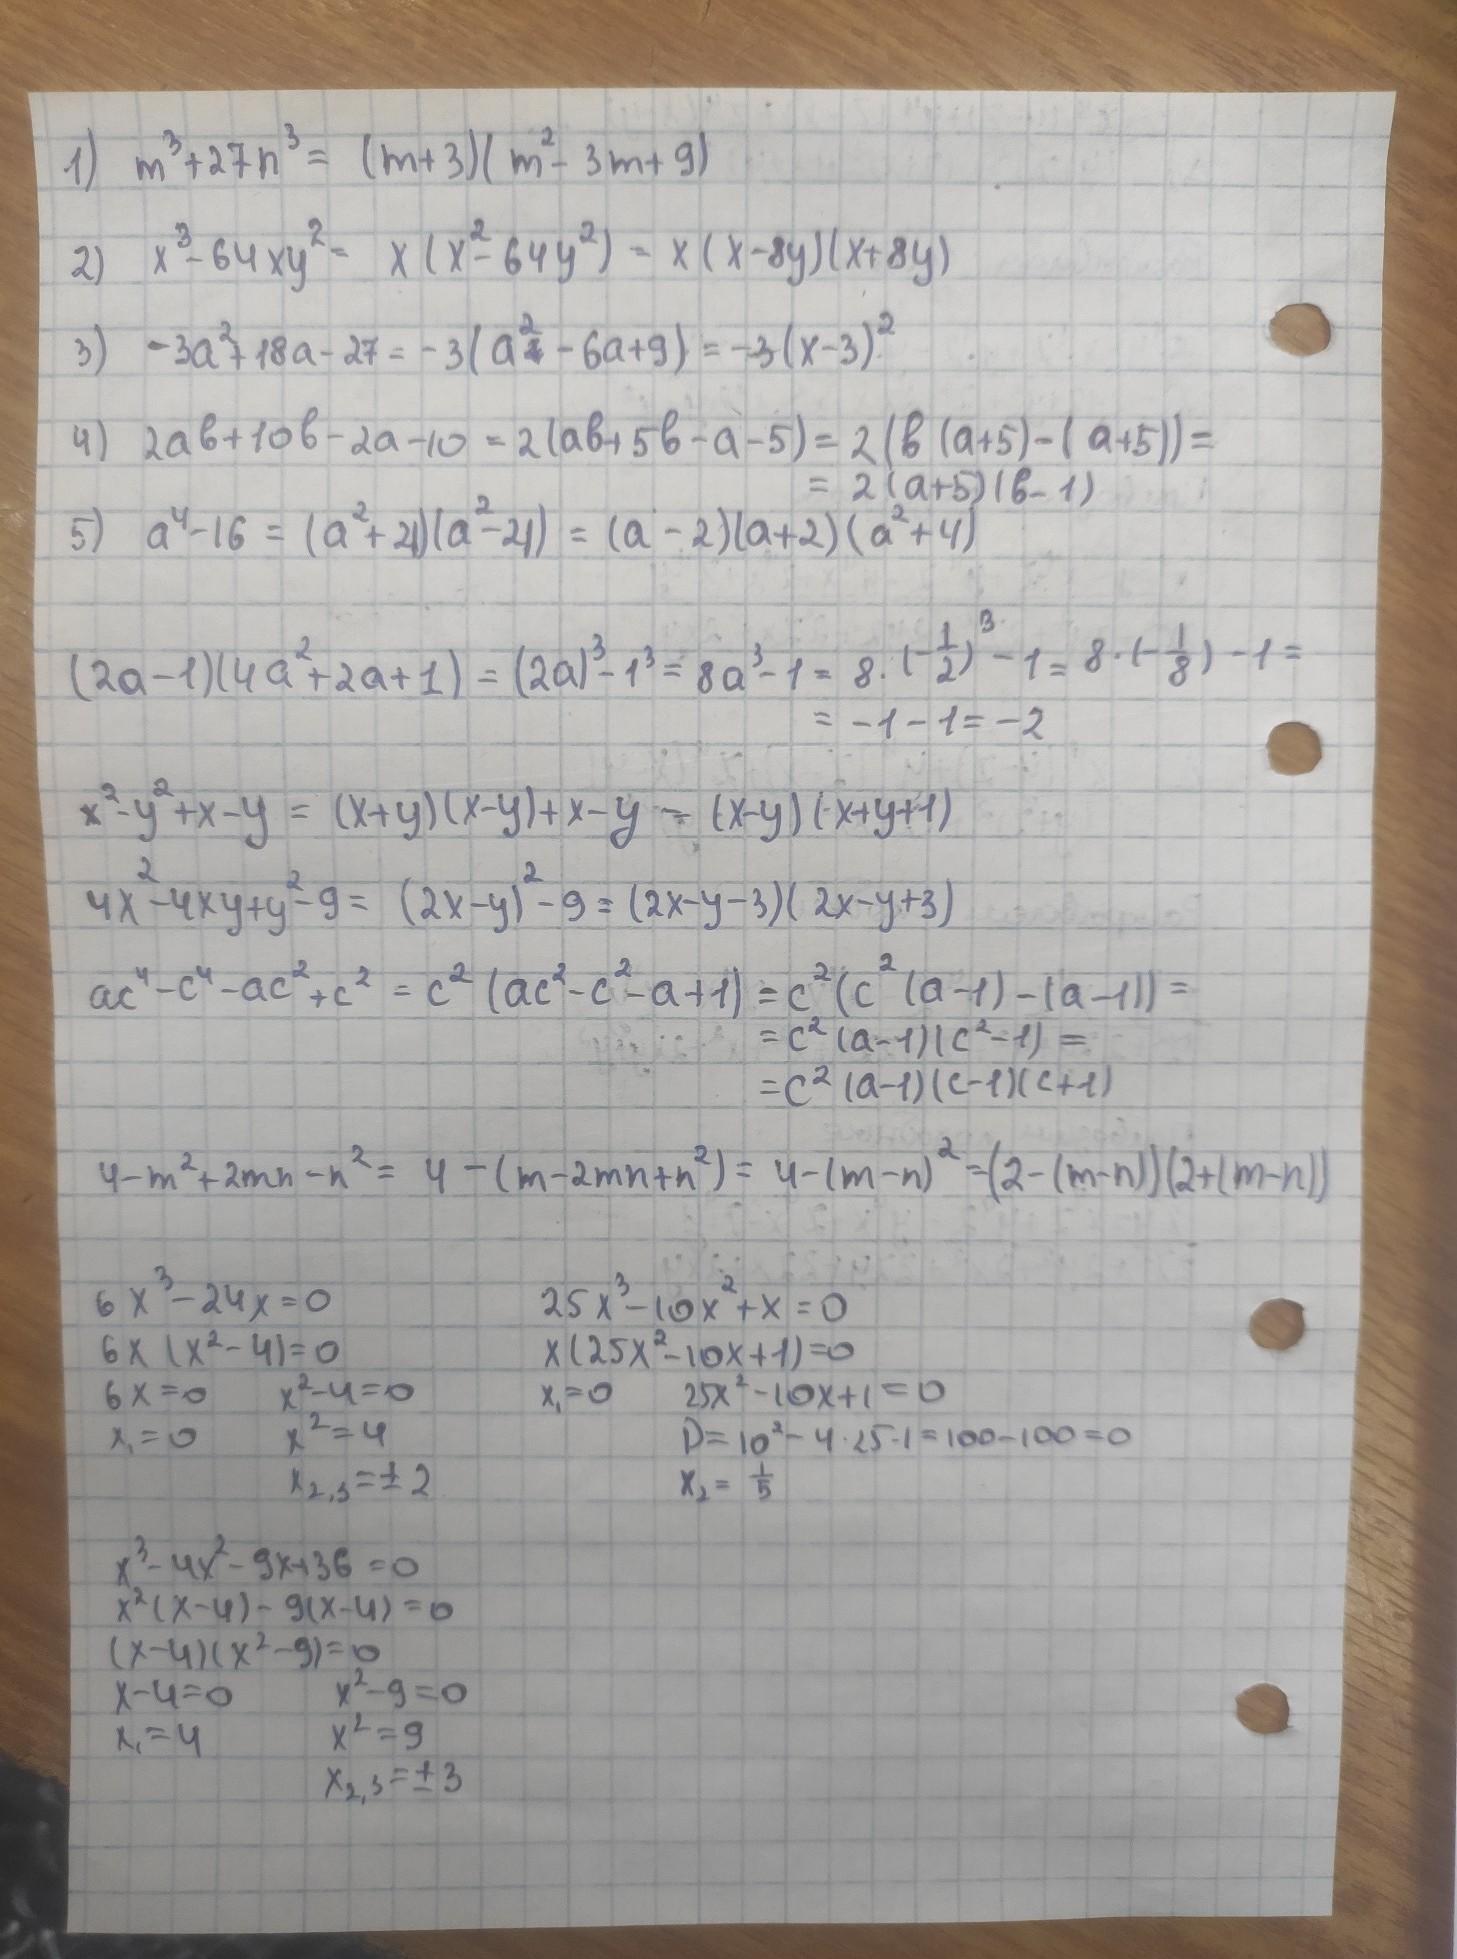 1) m³+27n³= (m+3)(m²-3m+9)
2) x³-64xy²= x(x²-64y²) = x(x-8y)(x+8y)
3) -3a²+18a-27=-3(a²-6a+9)=-3(x-3)²
4) 2ab+10b-2a-10=2(ab+5b-a-5)=2(b(a+5)-(a+5))=
= 2(a+5)(b-1)
5) a⁴-16 = (a²+4)(a²-4) = (a-2)(a+2)(a²+4)
(2a-1)(4a²+2a+1) = (2a)³-1³=8a³-1= 8·(-1/2)³-1=8·(-1/8)-1=
= -1-1=-2
x²-y²+x-y = (x+y)(x-y)+x-y = (x-y)(x+y+1)
4x²-4xy+y²-9= (2x-y)²-9=(2x-y-3)(2x-y+3)
ac⁴-c⁴-ac²+c² = c²(ac²-c²-a+1)=c²(c²(a-1)-(a-1))=
=c²(a-1)(c²-1)=
=c²(a-1)(c-1)(c+1)
4-m²+2mn-n²= 4-(m-2mn+n²)= 4-(m-n)²=(2-(m-n))(2+(m-n))
6x³-24x=0 25x³-10x²+x=0
6x(x²-4)=0 x(25x²-10x+1)=0
6x=0 x²-4=0 x₁=0 25x²-10x+1=0
x₁=0 x²=4 D=10²-4·25·1=100-100=0
x₂,₃=±2 x₂=1/5
x³-4x²-9x+36=0
x²(x-4)-9(x-4)=0
(x-4)(x²-9)=0
x-4=0 x²-9=0
x₁=4 x²=9
x₂,₃=±3